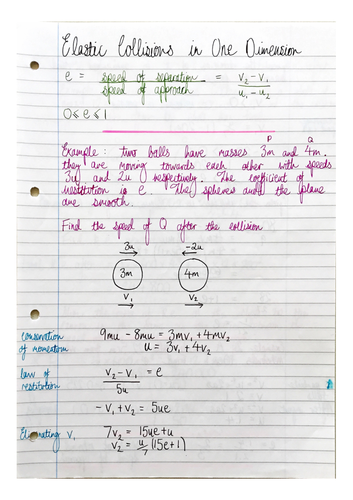 Elastic Collisions in One Dimension
e = speed of separation / speed of approach = v₂ - v₁ / u₁ - u₂
0 ≤ e ≤ 1
P Q
Example: two balls have masses 3m and 4m.
they are moving towards each other with speeds
3u and 2u respectively. The coefficient of
restitution is e. The spheres and the plane
are smooth.
Find the speed of Q after the collision
3u -2u
3m 4m
v₁ v₂
conservation of momentum
9mu - 8mu = 3mv₁ + 4mv₂
u = 3v₁ + 4v₂
law of restitution
v₂ - v₁ / 5u = e
-v₁ + v₂ = 5ue
Eliminating v₁
7v₂ = 15ue + u
v₂ = u/7 (15e + 1)